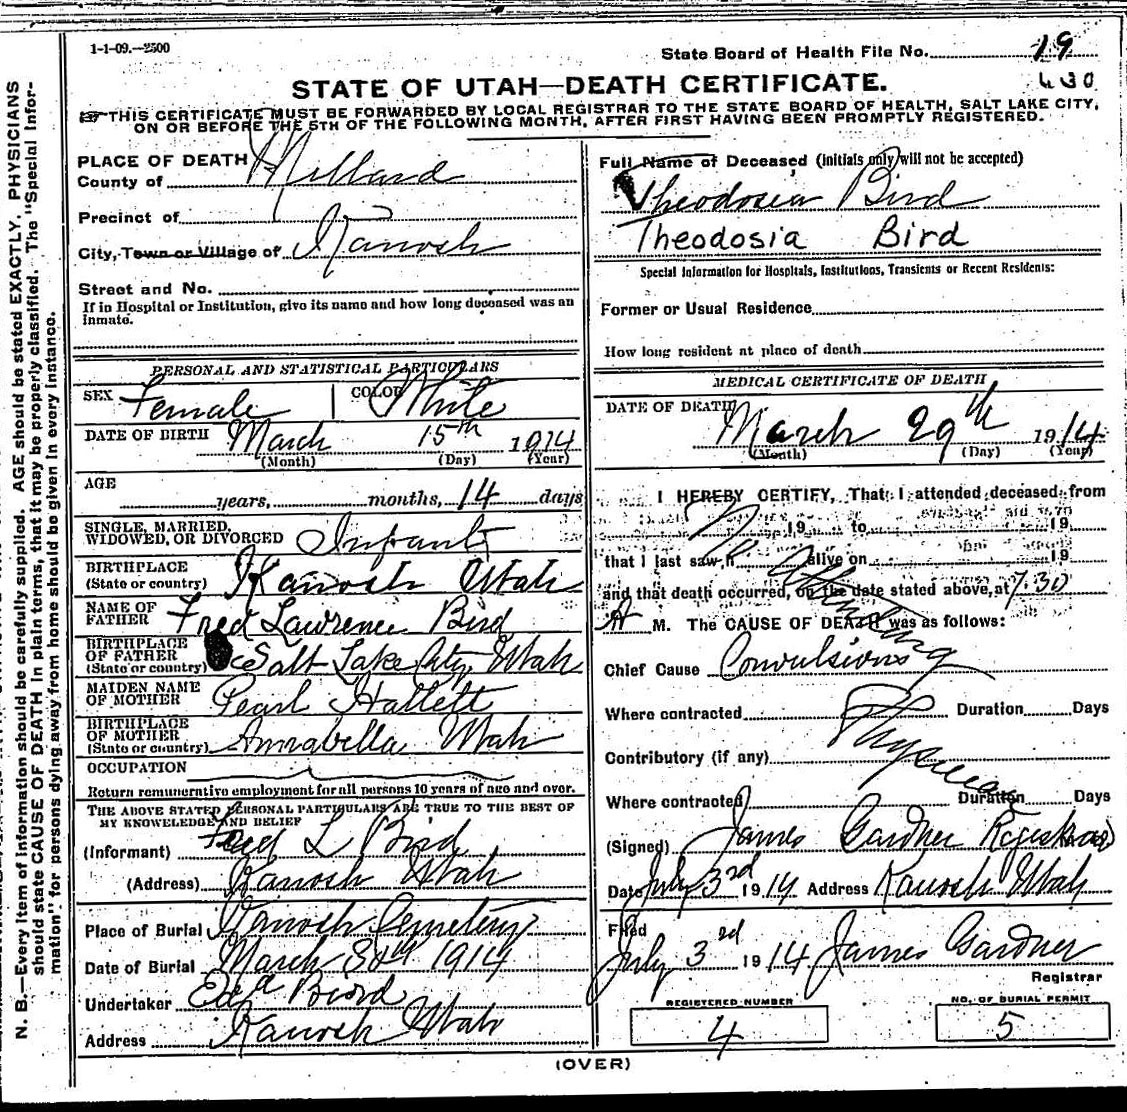 1-1-09.—2500
State Board of Health File No. 19
430
STATE OF UTAH—DEATH CERTIFICATE.
THIS CERTIFICATE MUST BE FORWARDED BY LOCAL REGISTRAR TO THE STATE BOARD OF HEALTH, SALT LAKE CITY,
ON OR BEFORE THE 5TH OF THE FOLLOWING MONTH, AFTER FIRST HAVING BEEN PROMPTLY REGISTERED.
PLACE OF DEATH
County of Millard
Precinct of
City, Town or Village of Kanosh
Street and No.
If in Hospital or Institution, give its name and how long deceased was an
Inmate.
PERSONAL AND STATISTICAL PARTICULARS
SEX Female COLOR White
DATE OF BIRTH March 15th 1914
(Month) (Day) (Year)
AGE
years, months, 14 days
SINGLE, MARRIED,
WIDOWED, OR DIVORCED Infant
BIRTHPLACE
(State or country) Kanosh Utah
NAME OF
FATHER Fred Lawrence Bird
BIRTHPLACE
OF FATHER
(State or country) Salt Lake City Utah
MAIDEN NAME
OF MOTHER Pearl Hallett
BIRTHPLACE
OF MOTHER
(State or country) Annabella Utah
OCCUPATION
Return remunerative employment for all persons 10 years of age and over.
THE ABOVE STATED PERSONAL PARTICULARS ARE TRUE TO THE BEST OF
MY KNOWLEDGE AND BELIEF
(Informant) Fred L Bird
(Address) Kanosh Utah
Place of Burial Kanosh Cemetery
Date of Burial March 30th 1914
Undertaker Bird
Address Kanosh Utah
Full Name of Deceased (initials only will not be accepted)
Theodosia Bird
Theodosia Bird
Special Information for Hospitals, Institutions, Transients or Recent Residents:
Former or Usual Residence
How long resident at place of death
MEDICAL CERTIFICATE OF DEATH
DATE OF DEATH
March 29th 1914
(Month) (Day) (Year)
I HEREBY CERTIFY, That I attended deceased from
No 19 to 19
that I last saw h alive on 19
Attending
and that death occurred, on the date stated above, at 7.30
A M. The CAUSE OF DEATH was as follows:
Chief Cause Convulsions
Where contracted Duration Days
Physician
Contributory (if any)
Where contracted Duration Days
(Signed) James Gardner Registrar
Date July 3rd 1914 Address Kanosh Utah
Filed
July 3rd 1914 James Gardner
Registrar
REGISTERED NUMBER
4
NO. OF BURIAL PERMIT
5
(OVER)
N. B.—Every item of information should be carefully supplied. AGE should be stated EXACTLY. PHYSICIANS
should state CAUSE OF DEATH in plain terms, that it may be properly classified. The "Special Infor-
mation" for persons dying away from home should be given in every instance.